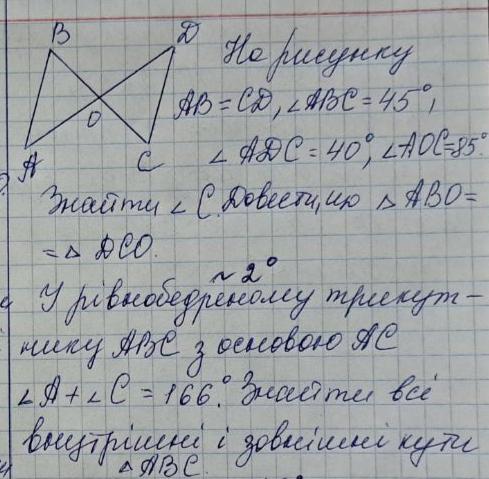 B D
O
A C
На рисунку
AB = CD, ∠ABC = 45°,
∠ADC = 40°, ∠AOC = 85°
Знайти ∠C. Довести, що △ABO =
= △DCO.
~ 2°
У рівнобедреному трикут-
нику ABC з основою AC
∠A + ∠C = 166°. Знайти всі
внутрішні і зовнішні кути
△ABC.